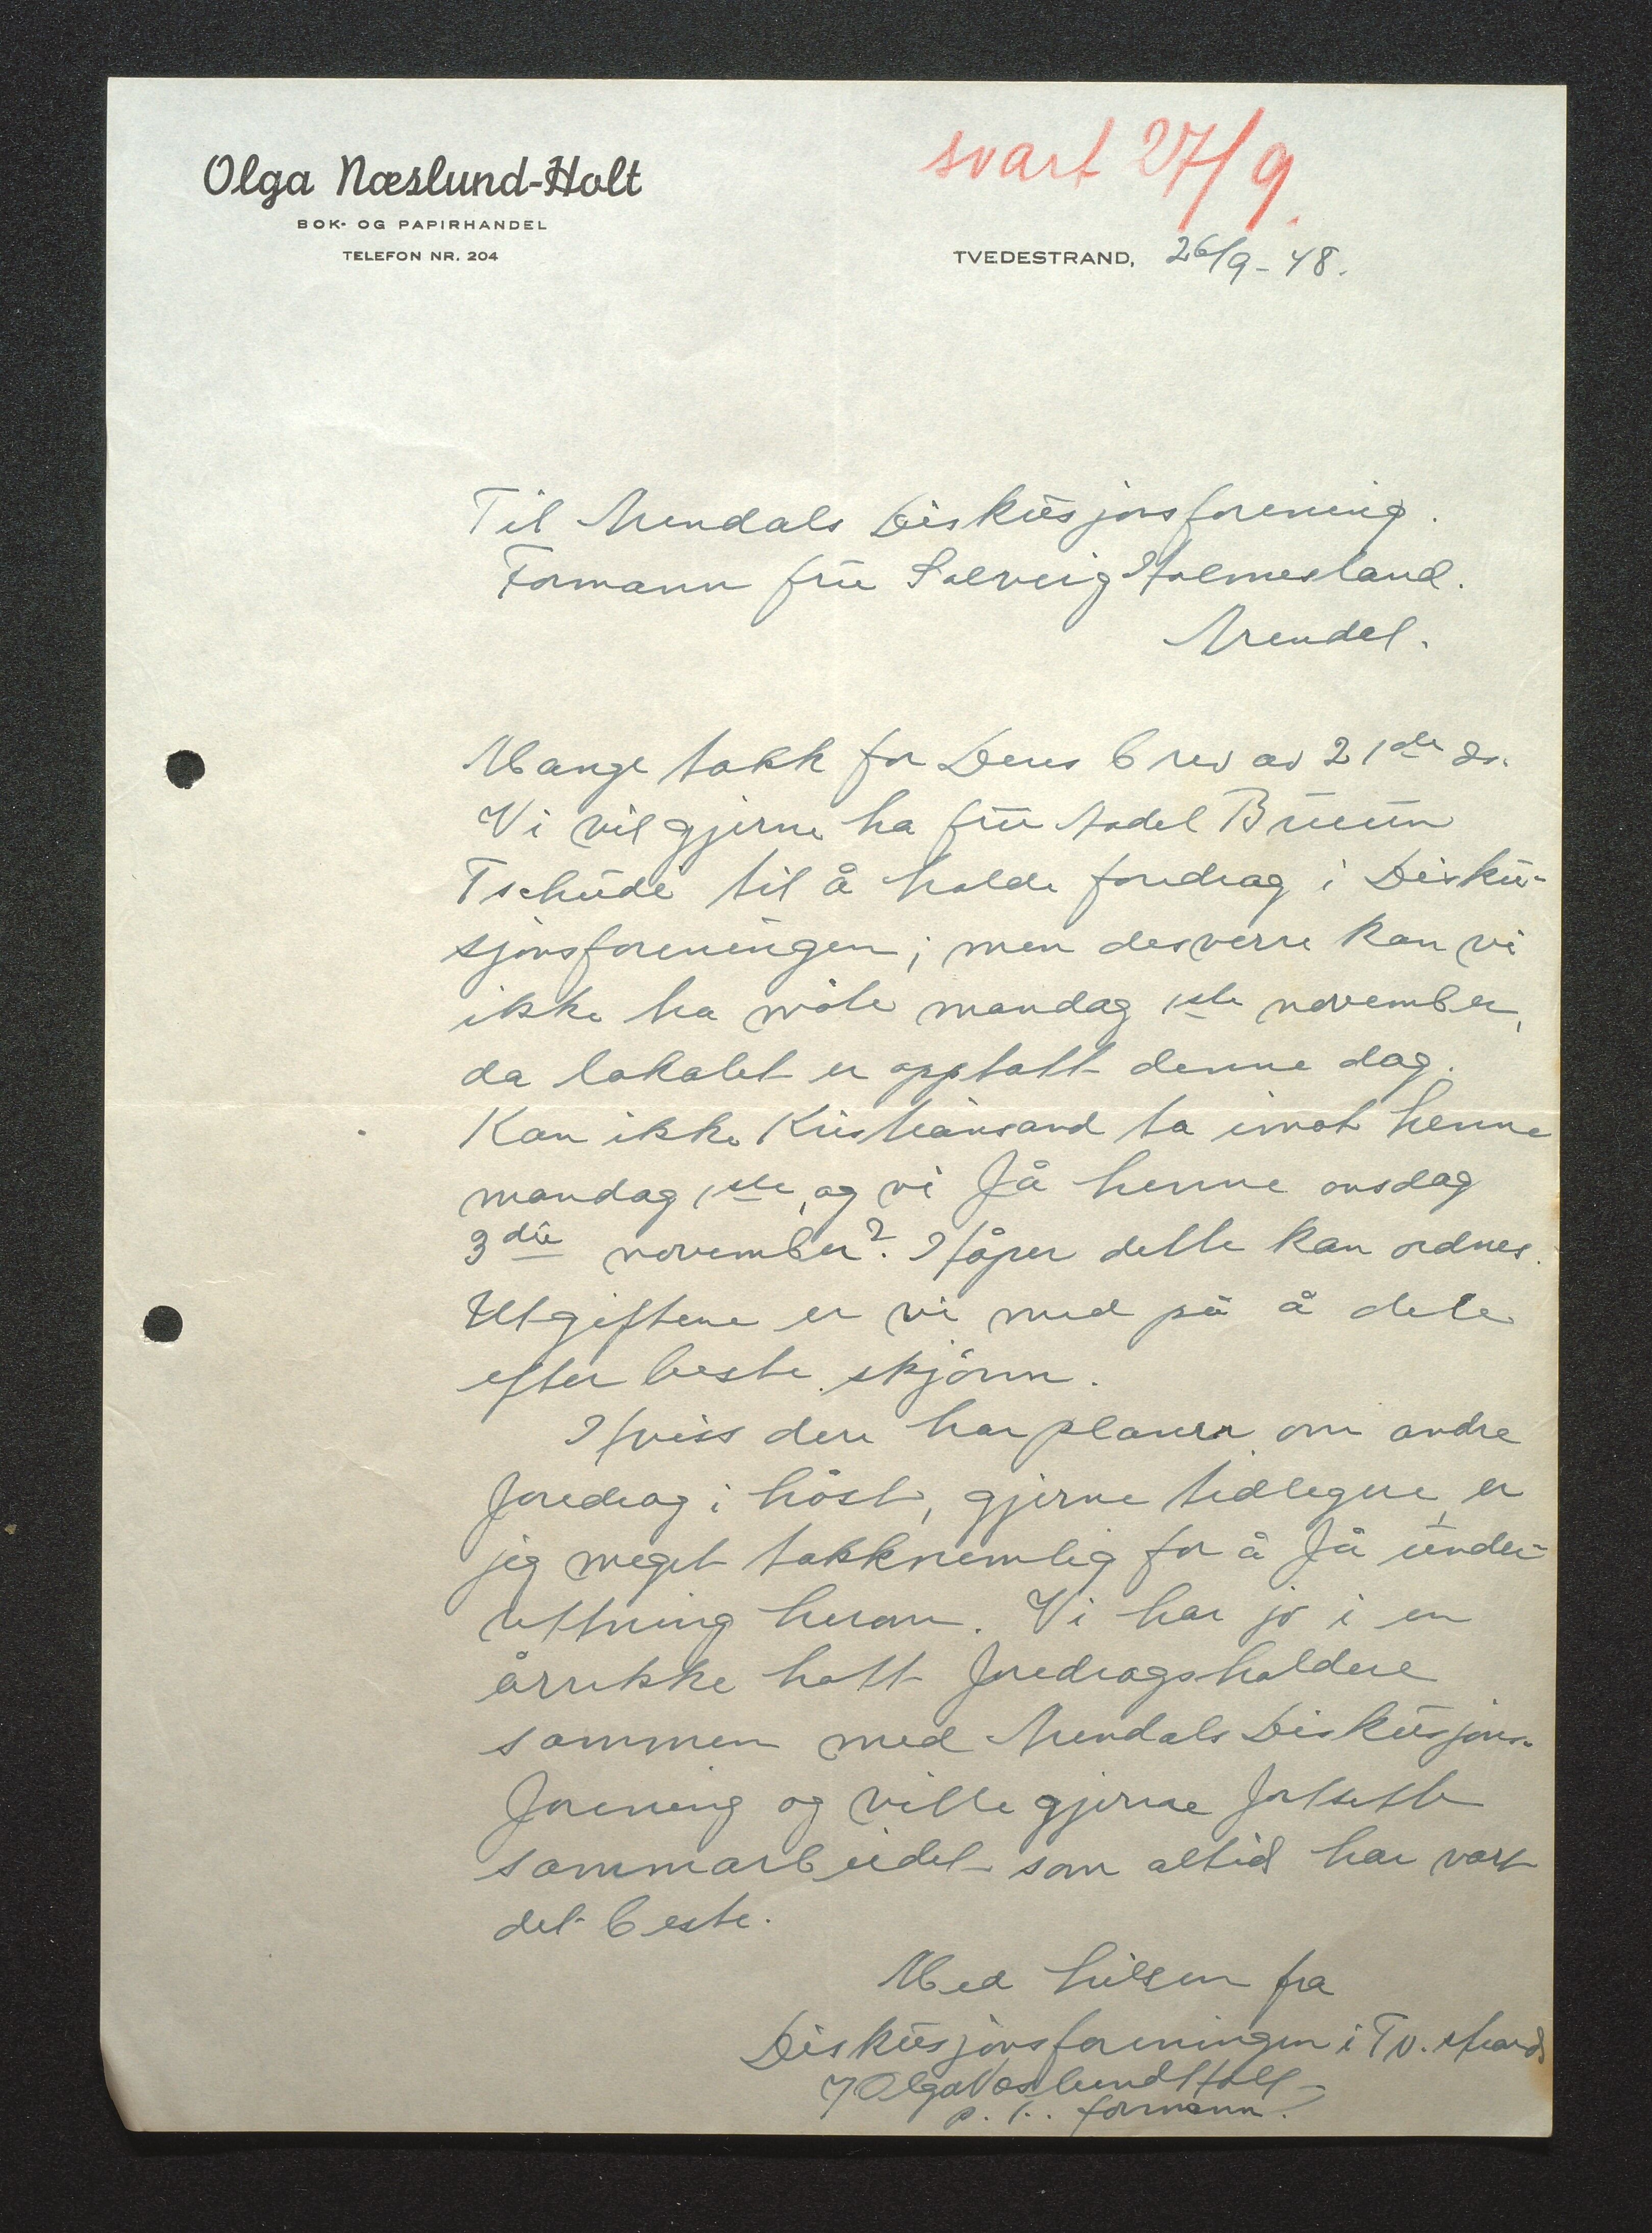 Olga Næslund-Holt
BOK- OG PAPIRHANDEL
TELEFON NR. 204
svart 27/9.
TVEDESTRAND, 26/9-48.
Til Arendals Diskusjonsforening.
Formann fru Solveig Holmesland.
Arendal.
Mange takk for Deres brev av 21de ds.
Vi vil gjerne ha fru Aadel Bruun
Tschudi til å holde foredrag i Disku-
sjonsforeningen; men desverre kan vi
ikke ha möte mandag 1ste november,
da lokalet er opptatt denne dag.
Kan ikke Kristiansand ta imot henne
mandag 1ste, og vi få henne onsdag
3die november? Håper dette kan ordnes.
Utgiftene er vi med på å dele
efter beste skjönn.
Hviss dere har planer om andre
foredrag i höst, gjerne tidligere, er
jeg meget takknemlig for å få under-
rettning herom. Vi har jo i en
årrekke hatt foredragsholdere
sammen med Arendals Diskusjons-
forening og ville gjerne fortsette
sammarbeidet som altid har vært
det beste.
Med hilsen fra
Diskusjonsforeningen i Tv.strand
Olga Næslund Holt
p. t. formann.